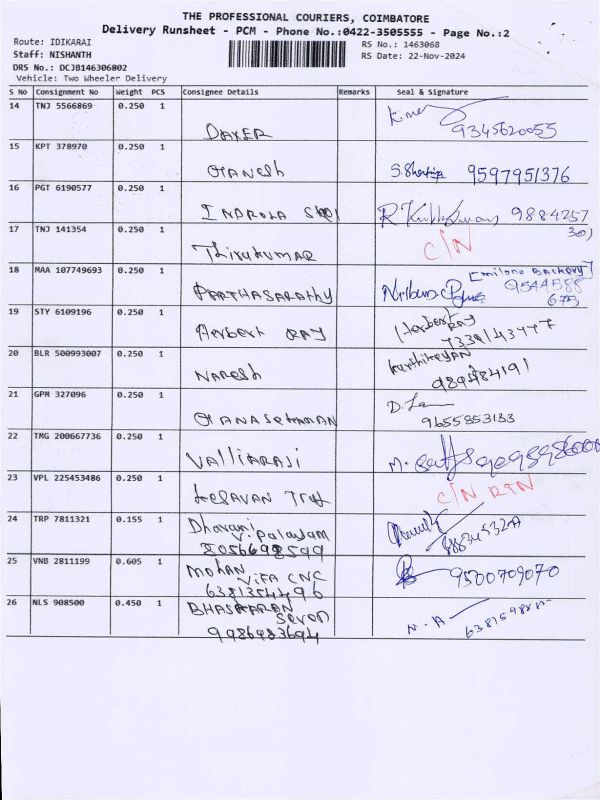 THE PROFESSIONAL COURIERS, COIMBATORE
Delivery Runsheet - PCM - Phone No.:0422-3505555 - Page No.:2
Route: IDIKARAI
RS No.: 1463068
Staff: NISHANTH
RS Date: 22-Nov-2024
DRS No.: DCJB146306802
Vehicle: Two Wheeler Delivery
S No Consignment No Weight PCS Consignee Details Remarks Seal & Signature
14 TNJ 5566869 0.250 1
9345620055
15 KPT 378970 0.250 1
GANESH 9597951376
16 PGT 6190577 0.250 1
9884257
301
17 TNJ 141354 0.250 1
C/N
Thirukumar
18 MAA 107749693 0.250 1
[Milano Backery]
PARTHASARATHY 9544588
675
19 STY 6109196 0.250 1
Herbert RAY
Herbert RAY
20 BLR 500993007 0.250 1
Karthikeyan
NARESH
21 GPM 327096 0.250 1
9655853133
22 TMG 200667736 0.250 1
VALLIARASI
23 VPL 225453486 0.250 1
C/N RTN
KESAVAN
24 TRP 7811321 0.155 1
Dharani
V. Palayam
8056698599
25 VNB 2811199 0.605 1
MOHAN
ViFA CNC 9500709070
6381354496
26 NLS 908500 0.450 1
BHASKARAN
Seven
9986983694